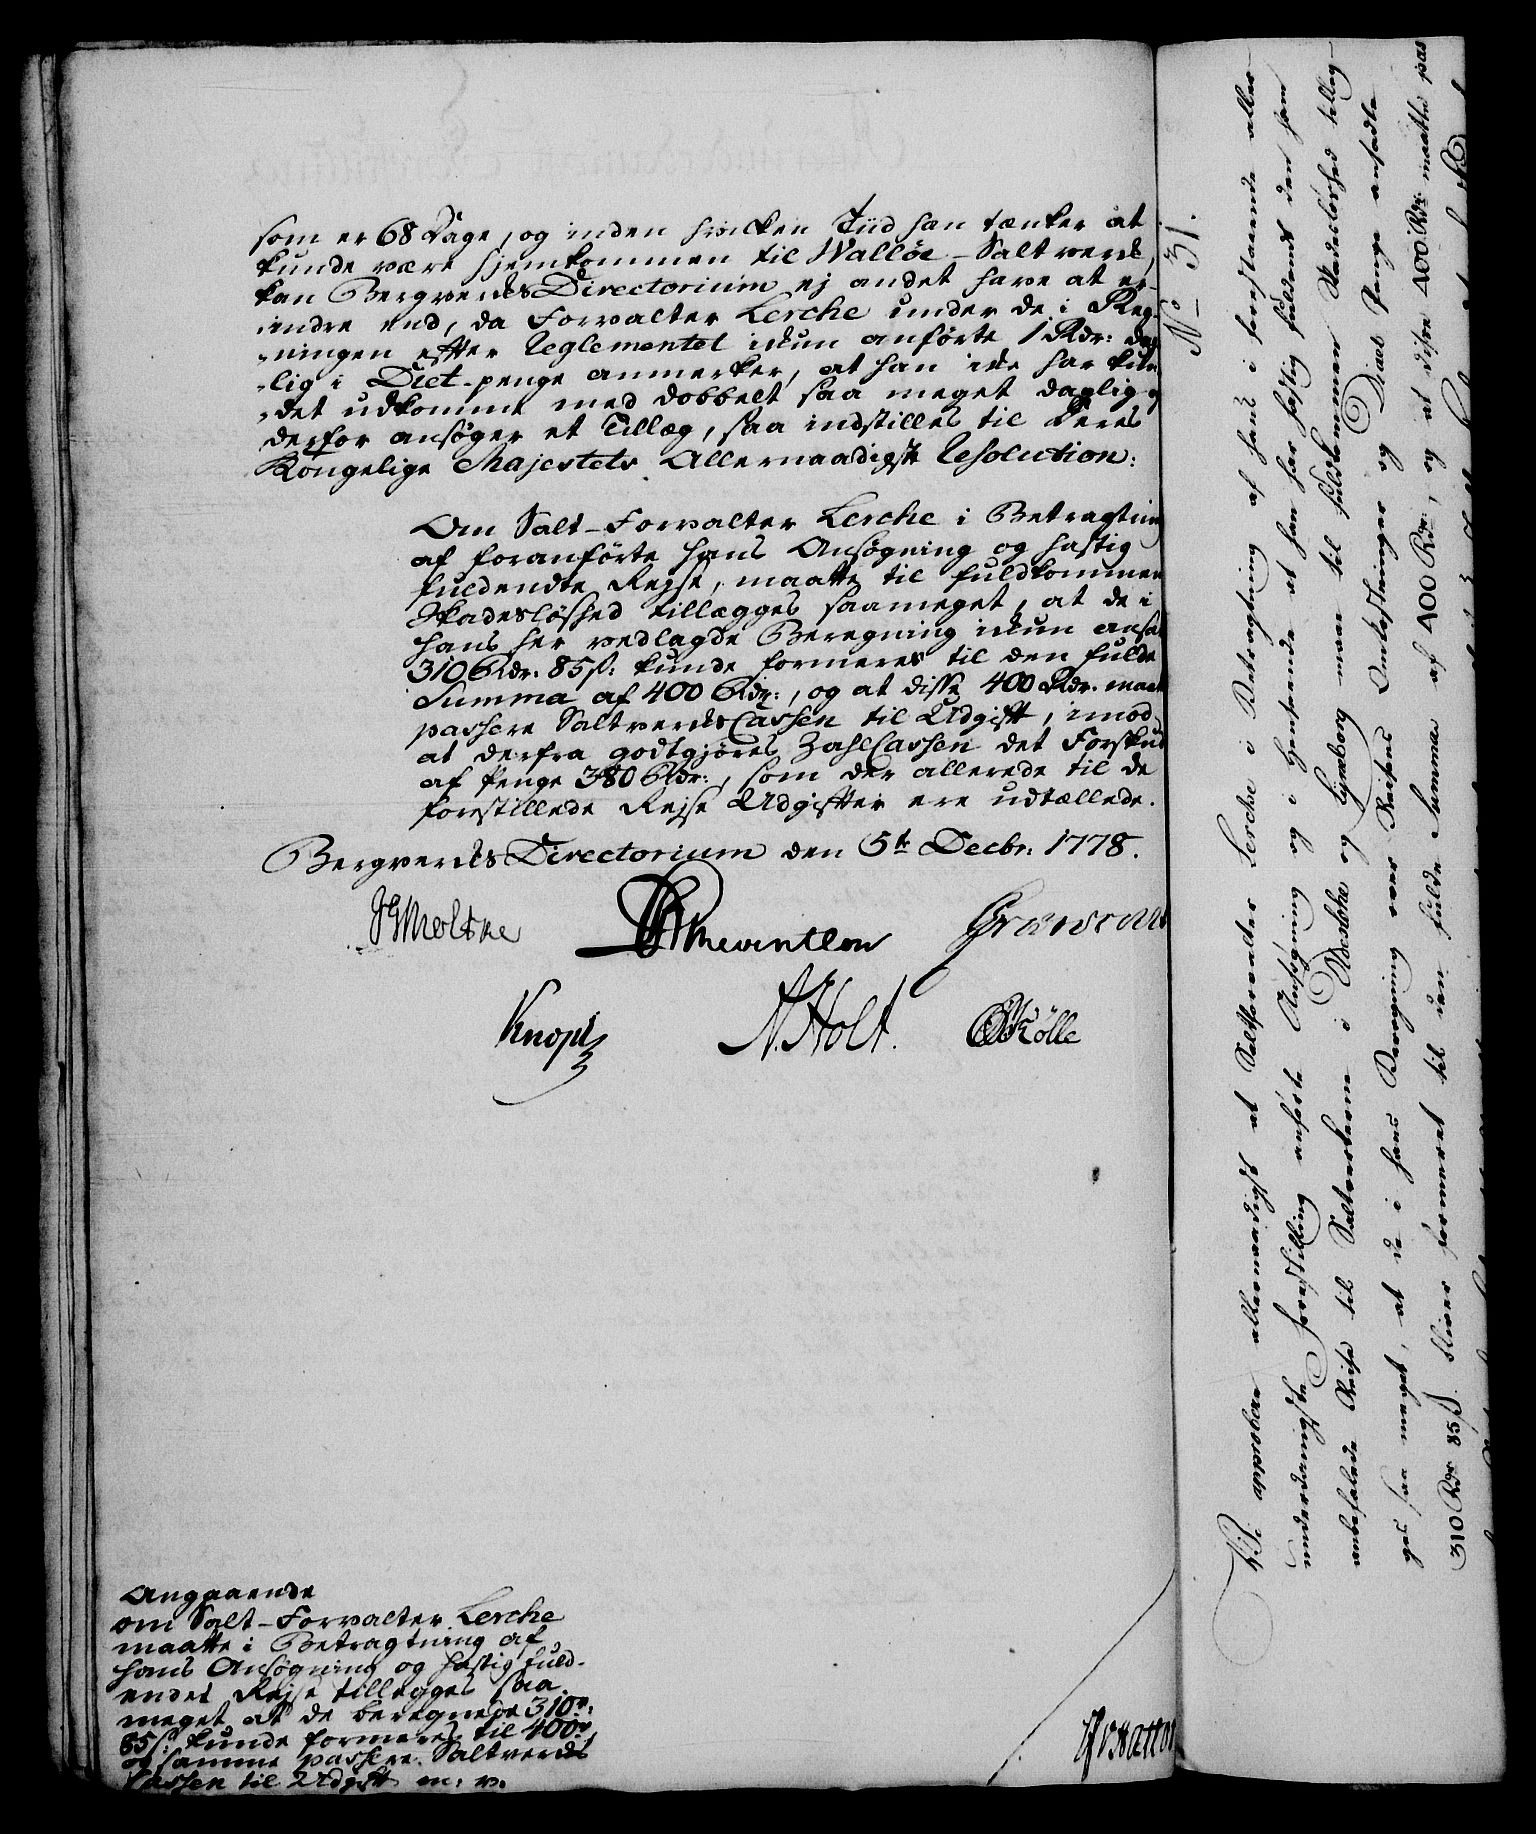 som er 68 Dage, og inden hvilken Tiid han tænker at
kunde være hjemkommen til Walløe-Saltverk,
kan BergverksDirectorium ej andet have at er-
indre end, da Forvalter Lerche under de i Reg-
-ningen efter Reglementet ikun anførte 1 Rdr: dag-
-lig i Diet-penge anmerker, at han ikke har kun-
-det udkomme med dobbelt saa meget daglig og
derfor ansøger et Tillæg, saa indstilles til Deres
Kongelige Majestets Allernaadigste Resolution:
Om Salt-Forvalter Lerche i Betragtning
af foranførte hans Ansøgning og hastig
fuldendte Rejse, maatte til fuldkommen
Skadesløshed tillægges saameget, at de i
hans her vedlagde Beregning ikun ansatte
310 Rdr. 85 ß: kunde formeres til den fulde
Summa af 400 Rdr:, og at disse 400 Rdr. maatte
passere SaltverksCassen til Udgift, imod
at derfra godtgjøres ZahlCassen det Forskud
af Penge 380 Rdr:, som der allerede til de
forestillede Rejse Udgifter ere udtællede.
BergverksDirectorium den 5te Decbr: 1778.
JGMoltke Reventlow
Knoph N. Holt. Kölle
Angaaende
om Salt-Forvalter Lerche
maatte i Betragtning af
hans Ansøgning og hastig fuld-
endet Rejse tillægges saa
meget at de beregnede 310 r:
85 ß: kunde formeres til 400 r,
og samme passere Saltverks
Cassen til Udgift m: v.
No 31.
Vi approbere allernaadigst at Saltforvalter Lerche i Betragtning af hans i forestaaende aller-
underdanigste Forestilling anførte Ansøgning og i Henseende at han har hastig fuldendt den ham
anbefalede Reise til Saltverkerne i Oldesloe og Lyneborg maae til fuldkommen Skadesløshed tillæg-
ges saa meget, at de i hans Beregning over Reisens Omkostninger og Diæt Penge ansadte
310 Rdr 85 ß. bliver formeret til den fulde Summa af 400 Rdr, og at disse 400 Rdr maatte pas